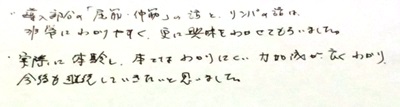 ・導入部分の「屈筋・伸筋」の話と、リンパの話は
非常にわかりやすく、更に興味をわかせてもらいました。
・実際に体験し、本ではわかりにくい力加減が良くわかり、
今後も継続していきたいと思いました。